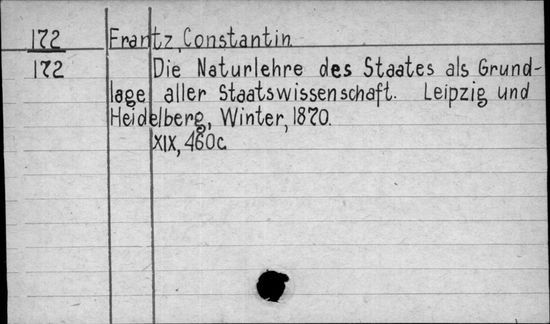 172 Frantz, Constantin.
172 Die Naturlehre des Staates als Grund-
lage aller Staatswissenschaft. Leipzig und
Heidelberg, Winter, 1870.
XIX, 460c.